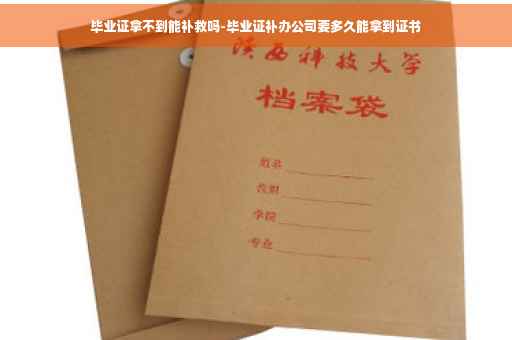 毕业证拿不到能补救吗-毕业证补办公司要多久能拿到证书
陕西科技大学
档案袋
姓名
教职
学院
专业